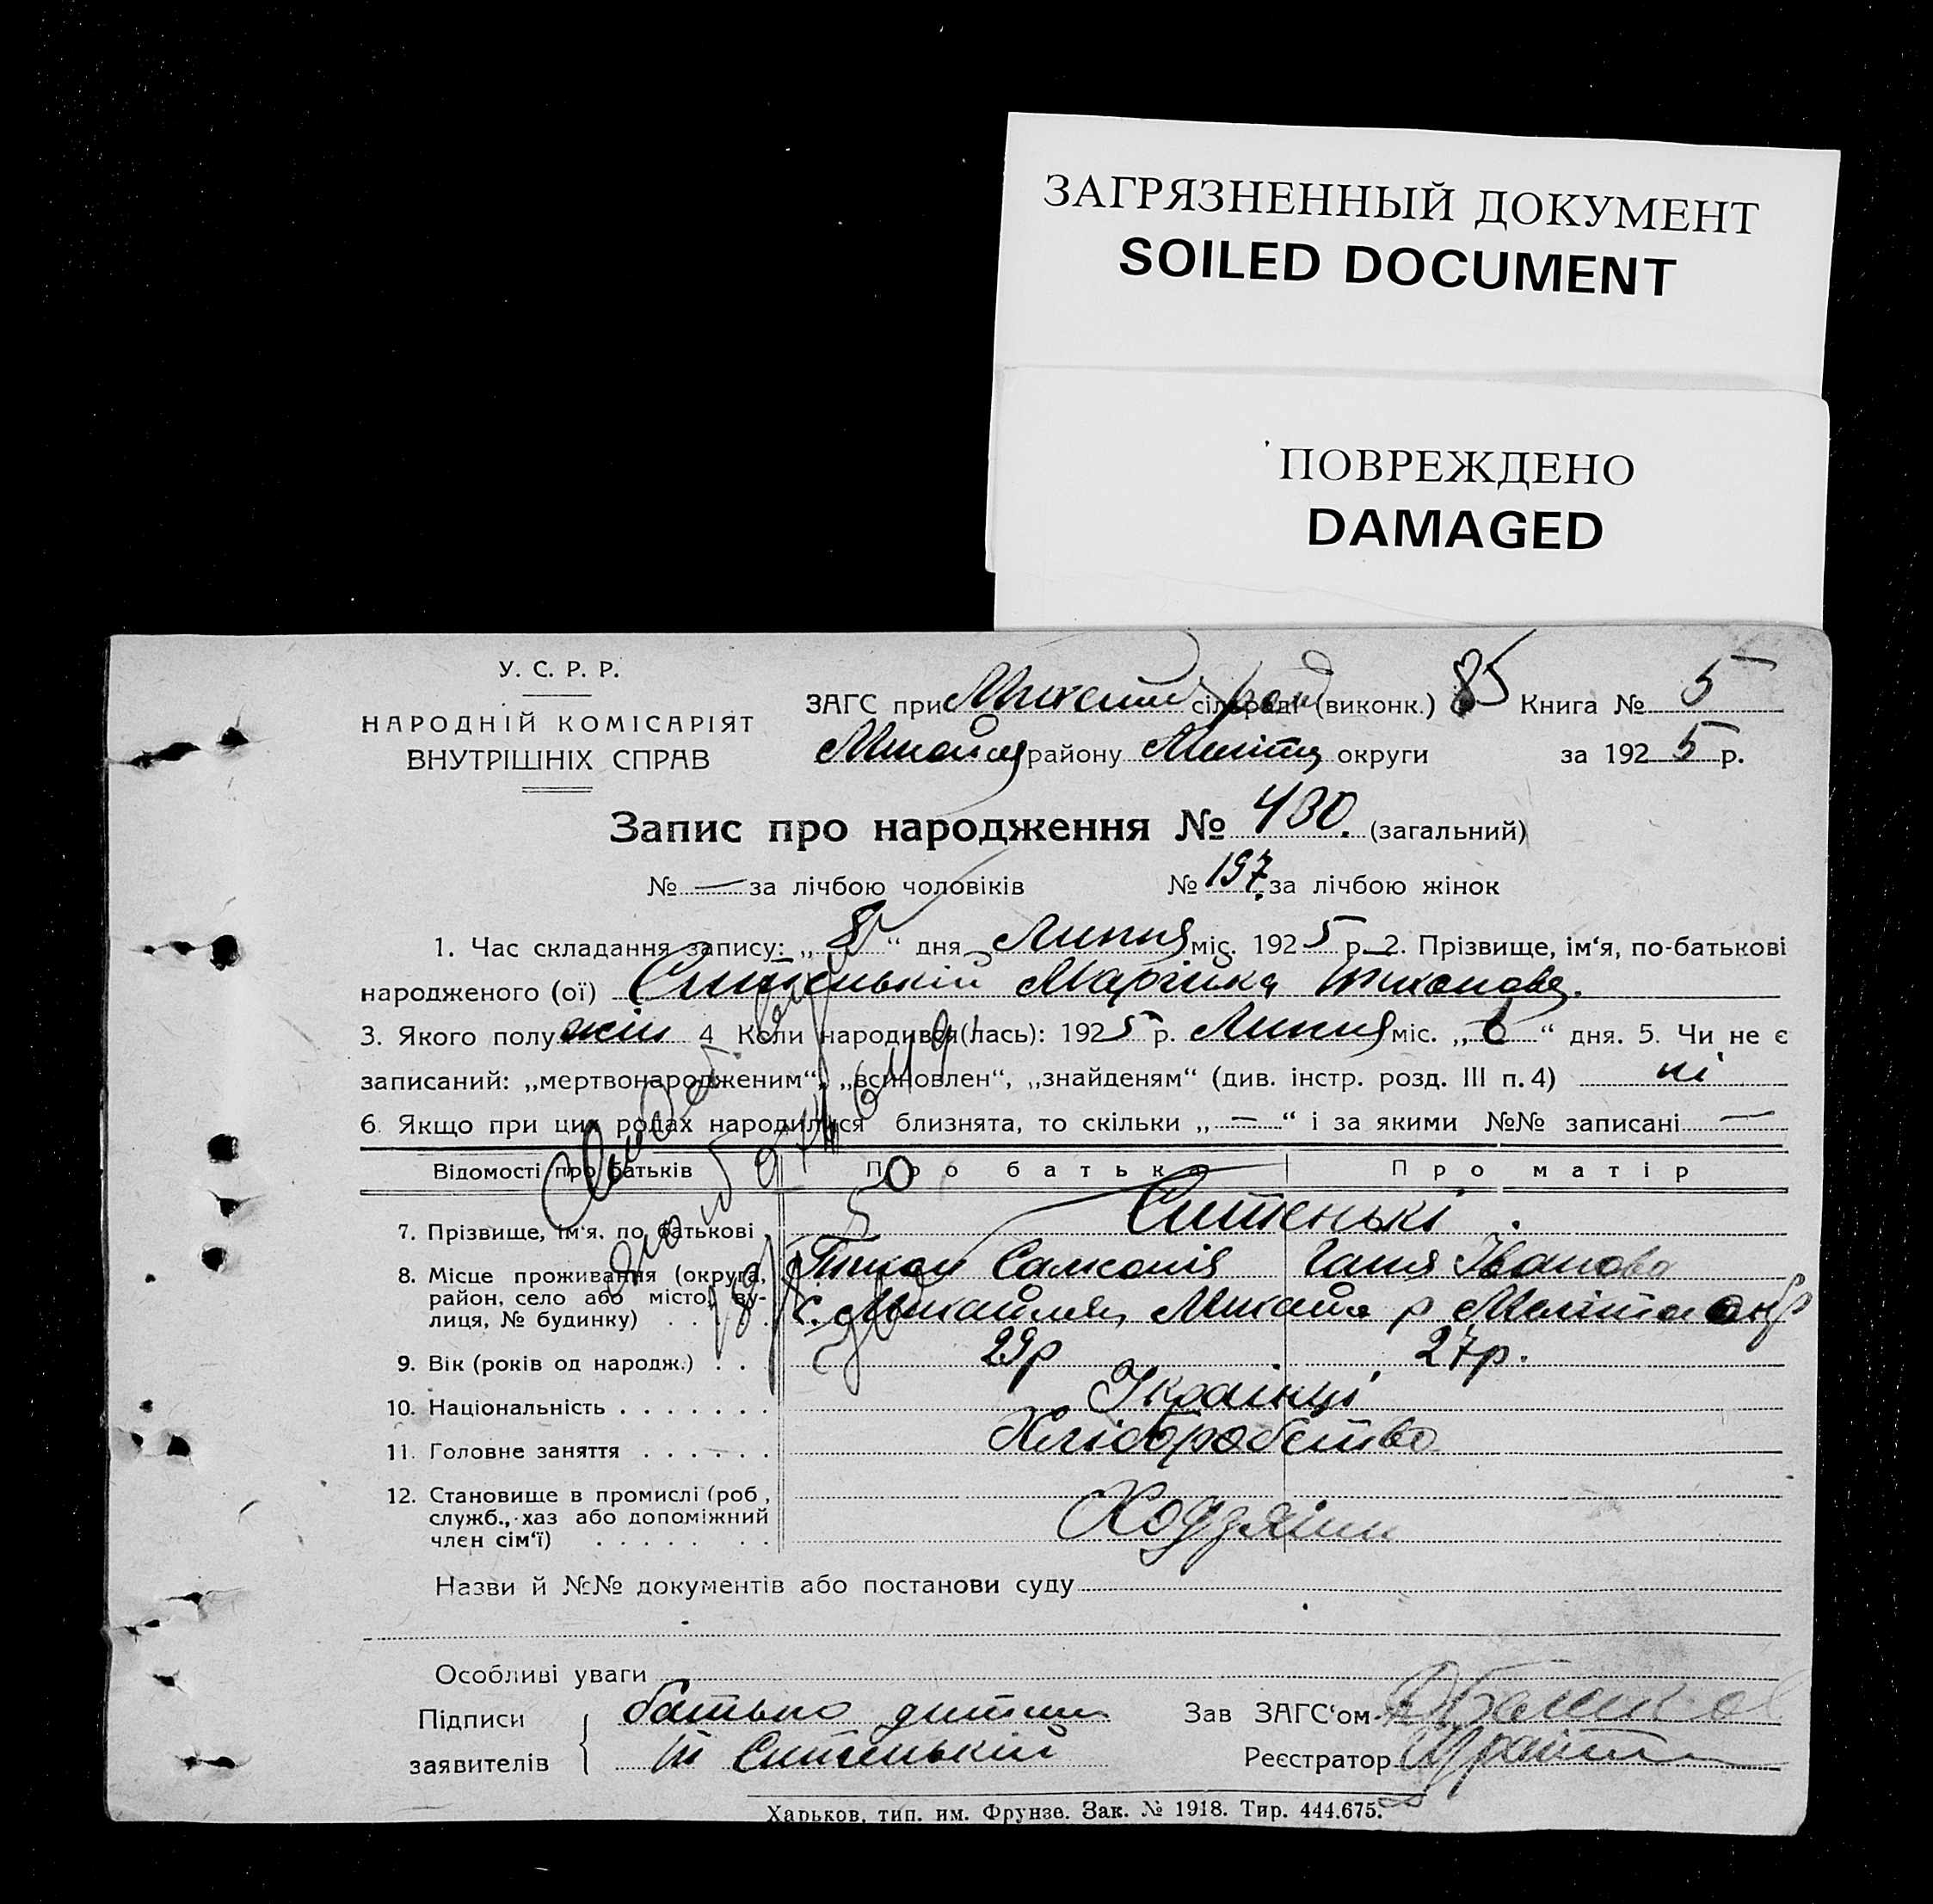 ЗАГРЯЗНЕННЫЙ ДОКУМЕНТ
SOILED DOCUMENT
ПОВРЕЖДЕНО
DAMAGED
У. С. Р. Р.
НАРОДНІЙ КОМІСАРІЯТ
ВНУТРІШНІХ СПРАВ
ЗАГС при сільради (виконк.) 85 Книга № 5
району Меліт округи за 1925 р.
Запис про народження № 430. (загальний)
№ — за лічбою чоловіків № 197. за лічбою жінок
1. Час складання запису: „8“ дня Липня міс. 1925 р. 2. Прізвище, ім‘я, по-батькові
народженого (ої) Ситенькій Марійка Тихонова.
3. Якого полу жін 4 Коли народився(лась): 1925 р. Липня міс. „6“ дня. 5. Чи не є
записаний: „мертвонародженим“, „всиновлен“, „знайденям“ (див. інстр. розд. III п. 4) ні
6. Якщо при цих родах народилися близнята, то скільки „—“ і за якими №№ записані —
Відомості про батьків Про батька Про матір
7. Прізвище, ім‘я, по батькові Ситенькі.
Тихон Самсонів Ганя Іванова
8. Місце проживання (округа, район, село або місто, вулиця, № будинку) с. Михайлівка, Михайл р Меліто окр
9. Вік (років од народж.) 29р 27р.
10. Національність Українці
11. Головне заняття Хліборобство
12. Становище в промислі (роб., служб., хаз або допоміжний член сім‘ї)
Назви й №№ документів або постанови суду
Особливі уваги
Підписи заявителів батько дитини
Т Ситенькій
Зав ЗАГС‘ом
Реєстратор
Харьков, тип. им. Фрунзе. Зак. № 1918. Тир. 444.675.